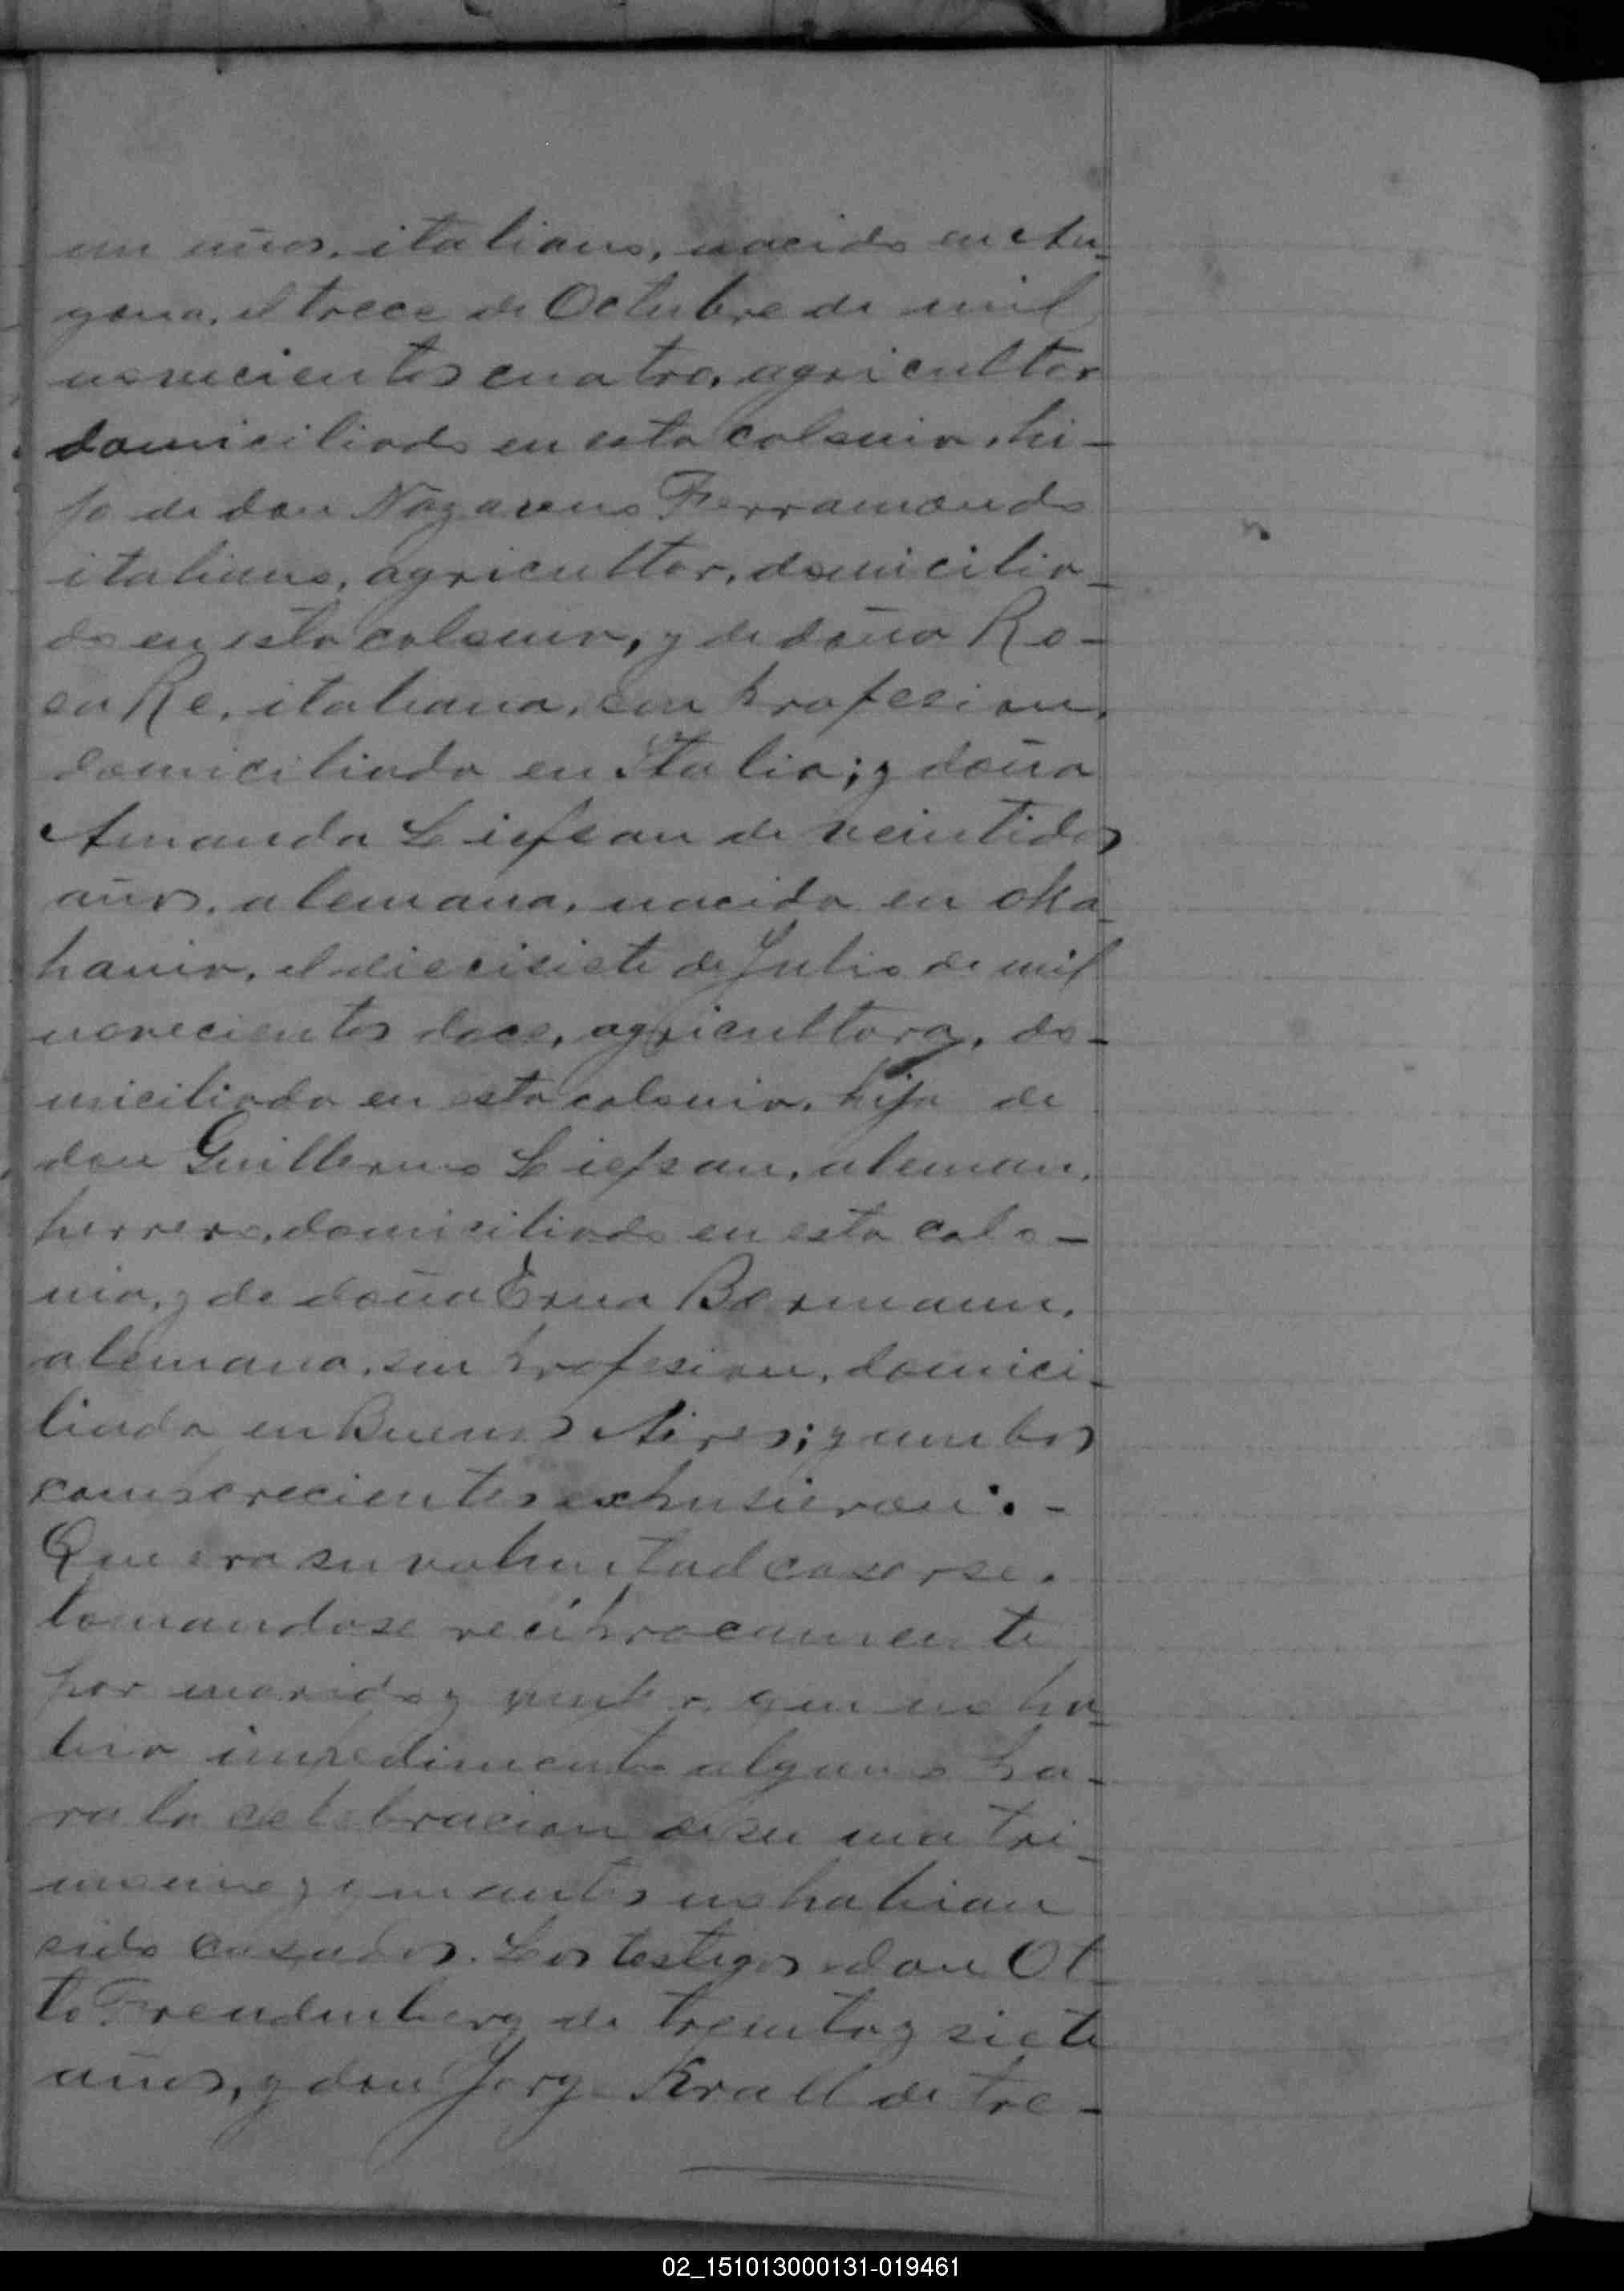 un años, italiano, nacido en An-
gona, el trece de Octubre de mil
novecientos cuatro, agricultor
domiciliado en esta colonia, hi-
jo de don Nazareno Ferramondo
italiano, agricultor, domicilia-
do en esta colonia, y de doña Ro-
sa Re, italiana, sin profesion,
domiciliada en Italia; y doña
Amanda Liefsan de veintidos
años, alemana, nacida en Oka-
hania, el diecisiete de Julio de mil
novecientos doce, agricultora, do-
miciliada en esta colonia, hija de
don Guillermo Liefsan, aleman,
herrero, domiciliado en esta colo-
nia, y de doña Erna Bormann,
alemana, sin profesion, domici-
liada en Buenos Aires; y ambos
comparecientes expusieron: -
Que era su voluntad casarse,
tomandose reciprocamente
por marido y mujer, que no ha-
bia impedimento alguno pa-
ra la celebracion de su matri-
monio y que antes no habian
sido casados. Los testigos don Ot-
to Freudenberg de treinta y siete
años, y don Jorg Krall de tre-
02_151013000131-019461